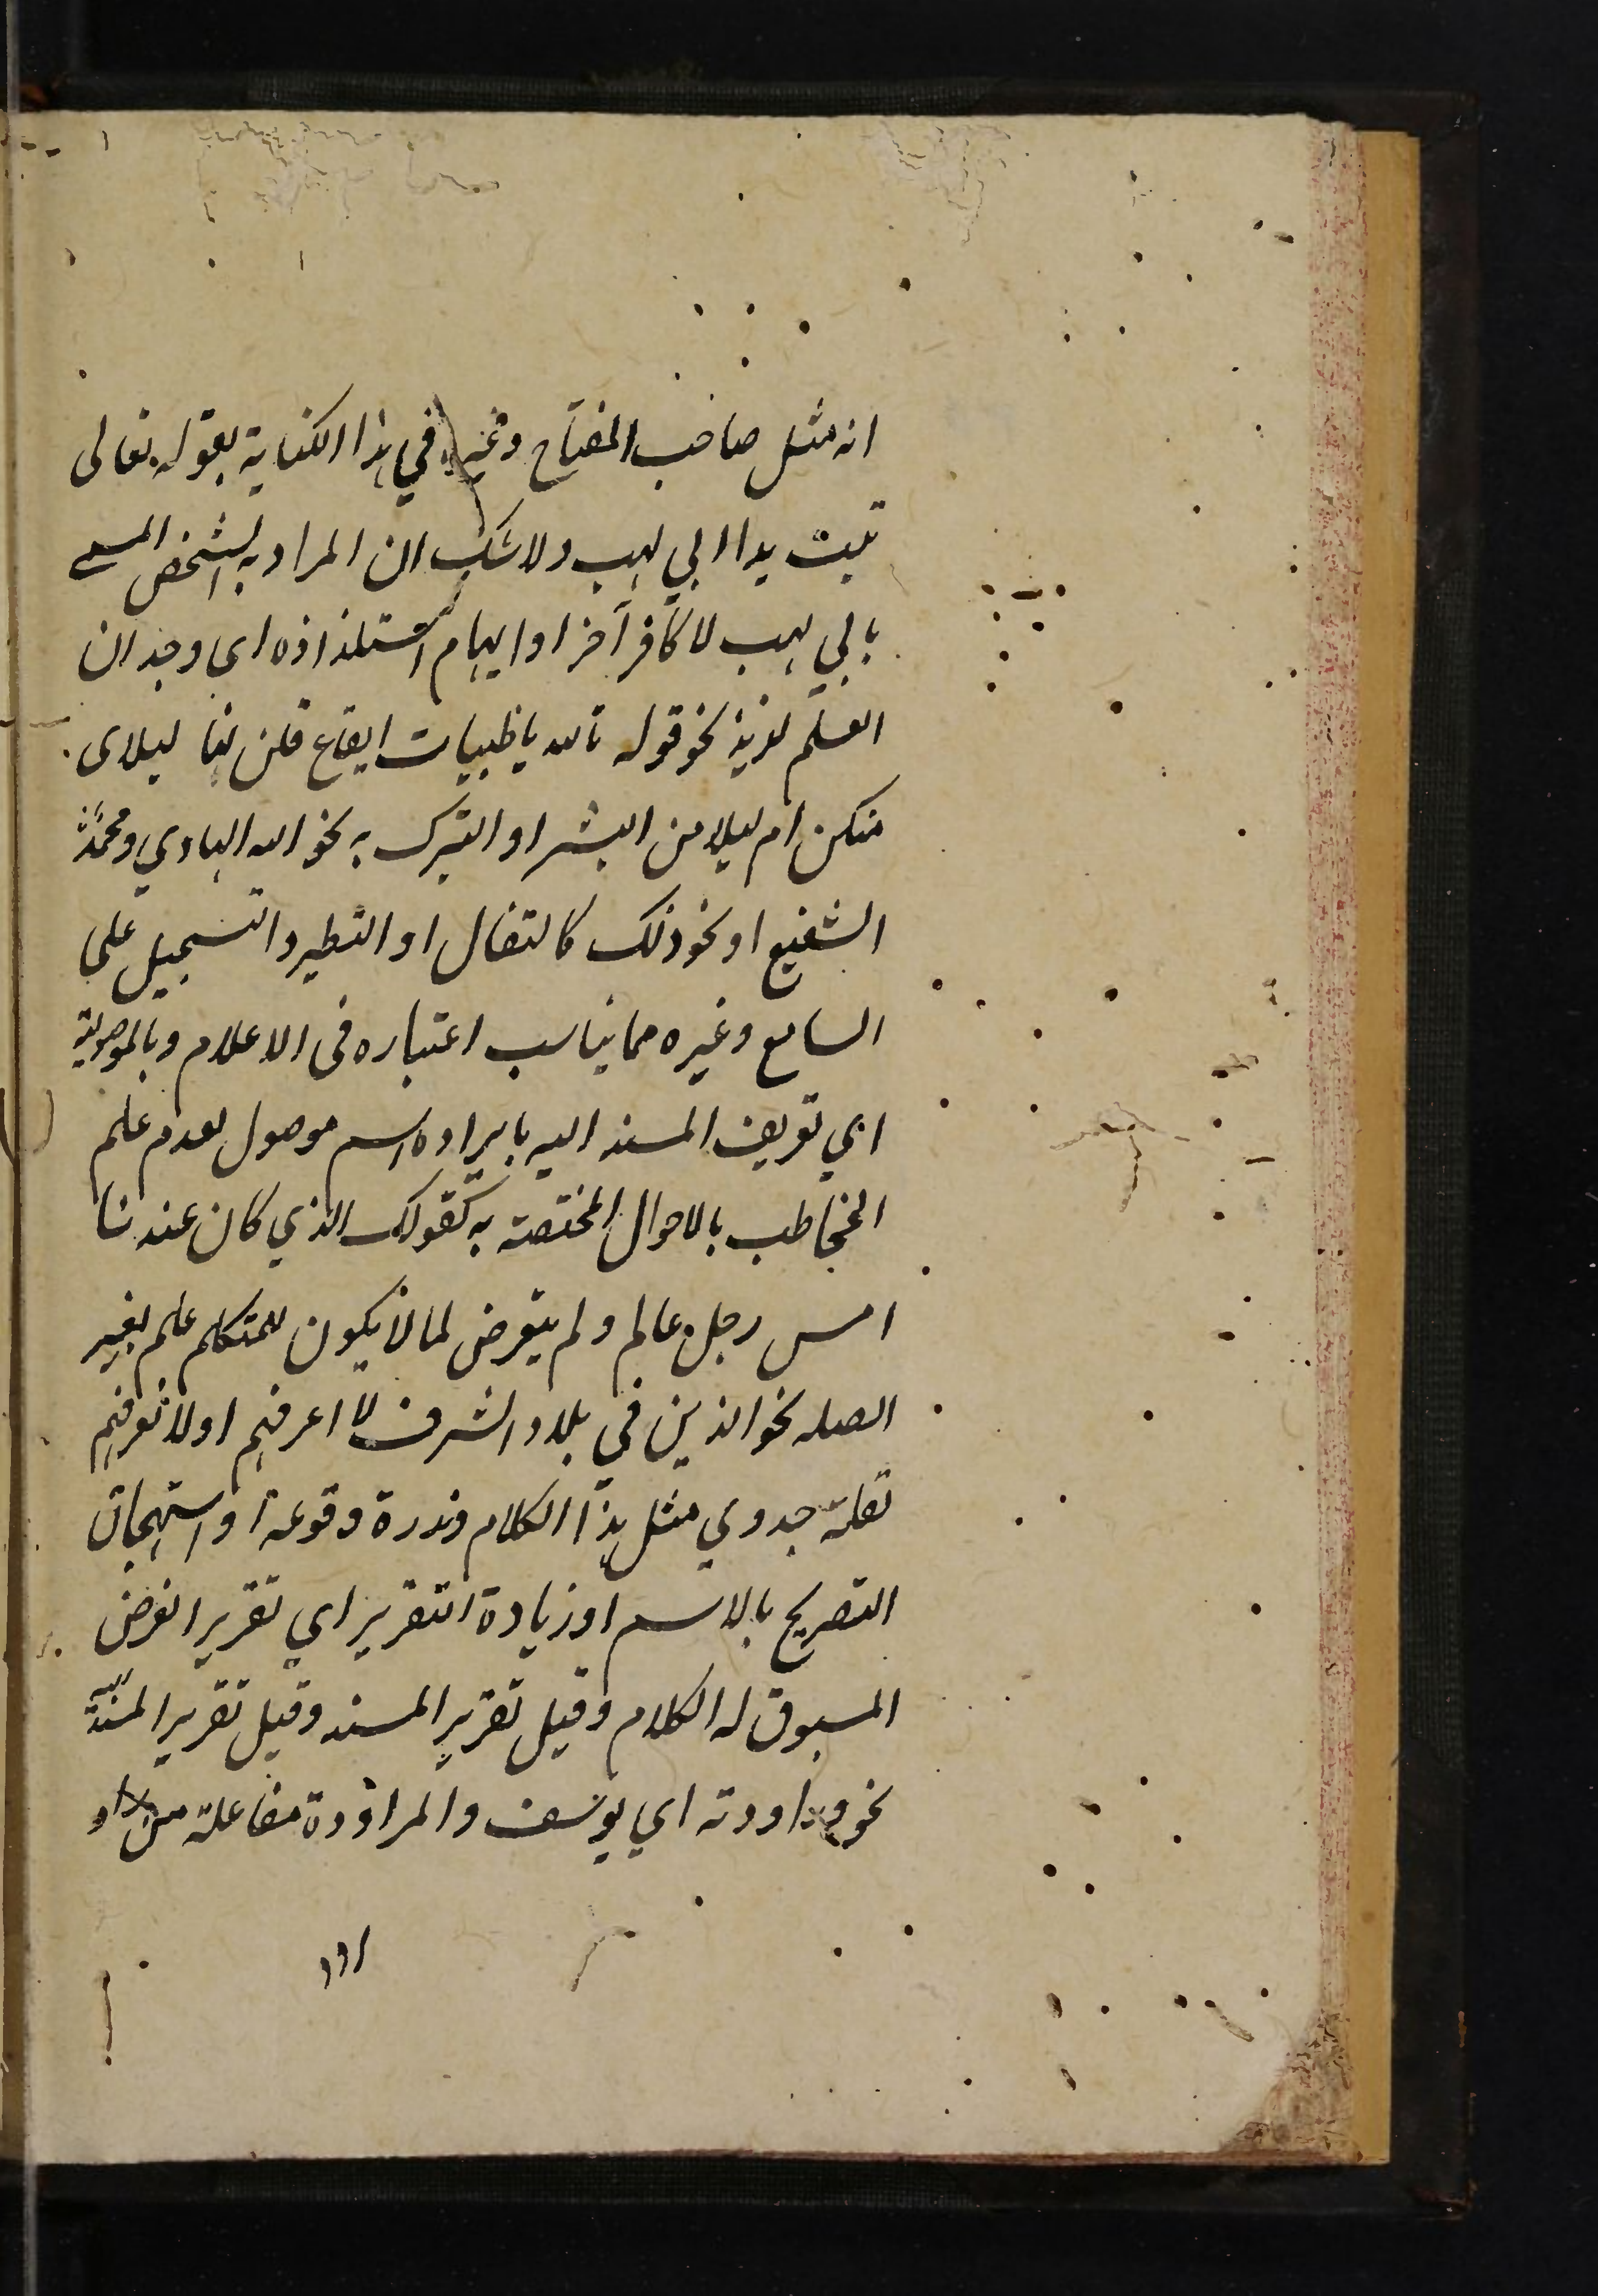 انه مثل صاحب المفتاح وغيره في هذا الكناية بقوله تعالى
تبت يدا ابي لهب ولا شك ان المراد به الشخص المسمى
بابي لهب لا كافر آخر او ايهام استلذاذه اى وجدان
العلم لذيذ نحو قوله تالله يا ظبيات القاع قلن لنا ليلاى
منكن ام ليلا من البشر او التبرك به نحو الله الهادي ومحمد
الشفيع او نحو ذلك كالتفال او التطير والتسجيل على
السامع وغيره مما يناسب اعتباره فى الاعلام وبالموصولية
اي تعريف المسند اليه بايراده اسم موصول لعدم علم
المخاطب بالاحوال المختصة به كقولك الذي كان عندنا
امس رجل عالم ولم يتعرض لما لا يكون للمتكلم علم بغير
الصله نحو الذين في بلاد الشرف لا اعرفهم او لا نعرفهم
لقلة جدوي مثل هذا الكلام وندرة وقوعه او استهجان
التصريح بالاسم او زيادة التقرير اي تقرير الغرض
المسبوق له الكلام وقيل تقرير المسند وقيل تقرير المسند اليه
نحو وراودته اي يوسف والمراودة مفاعلة من راد